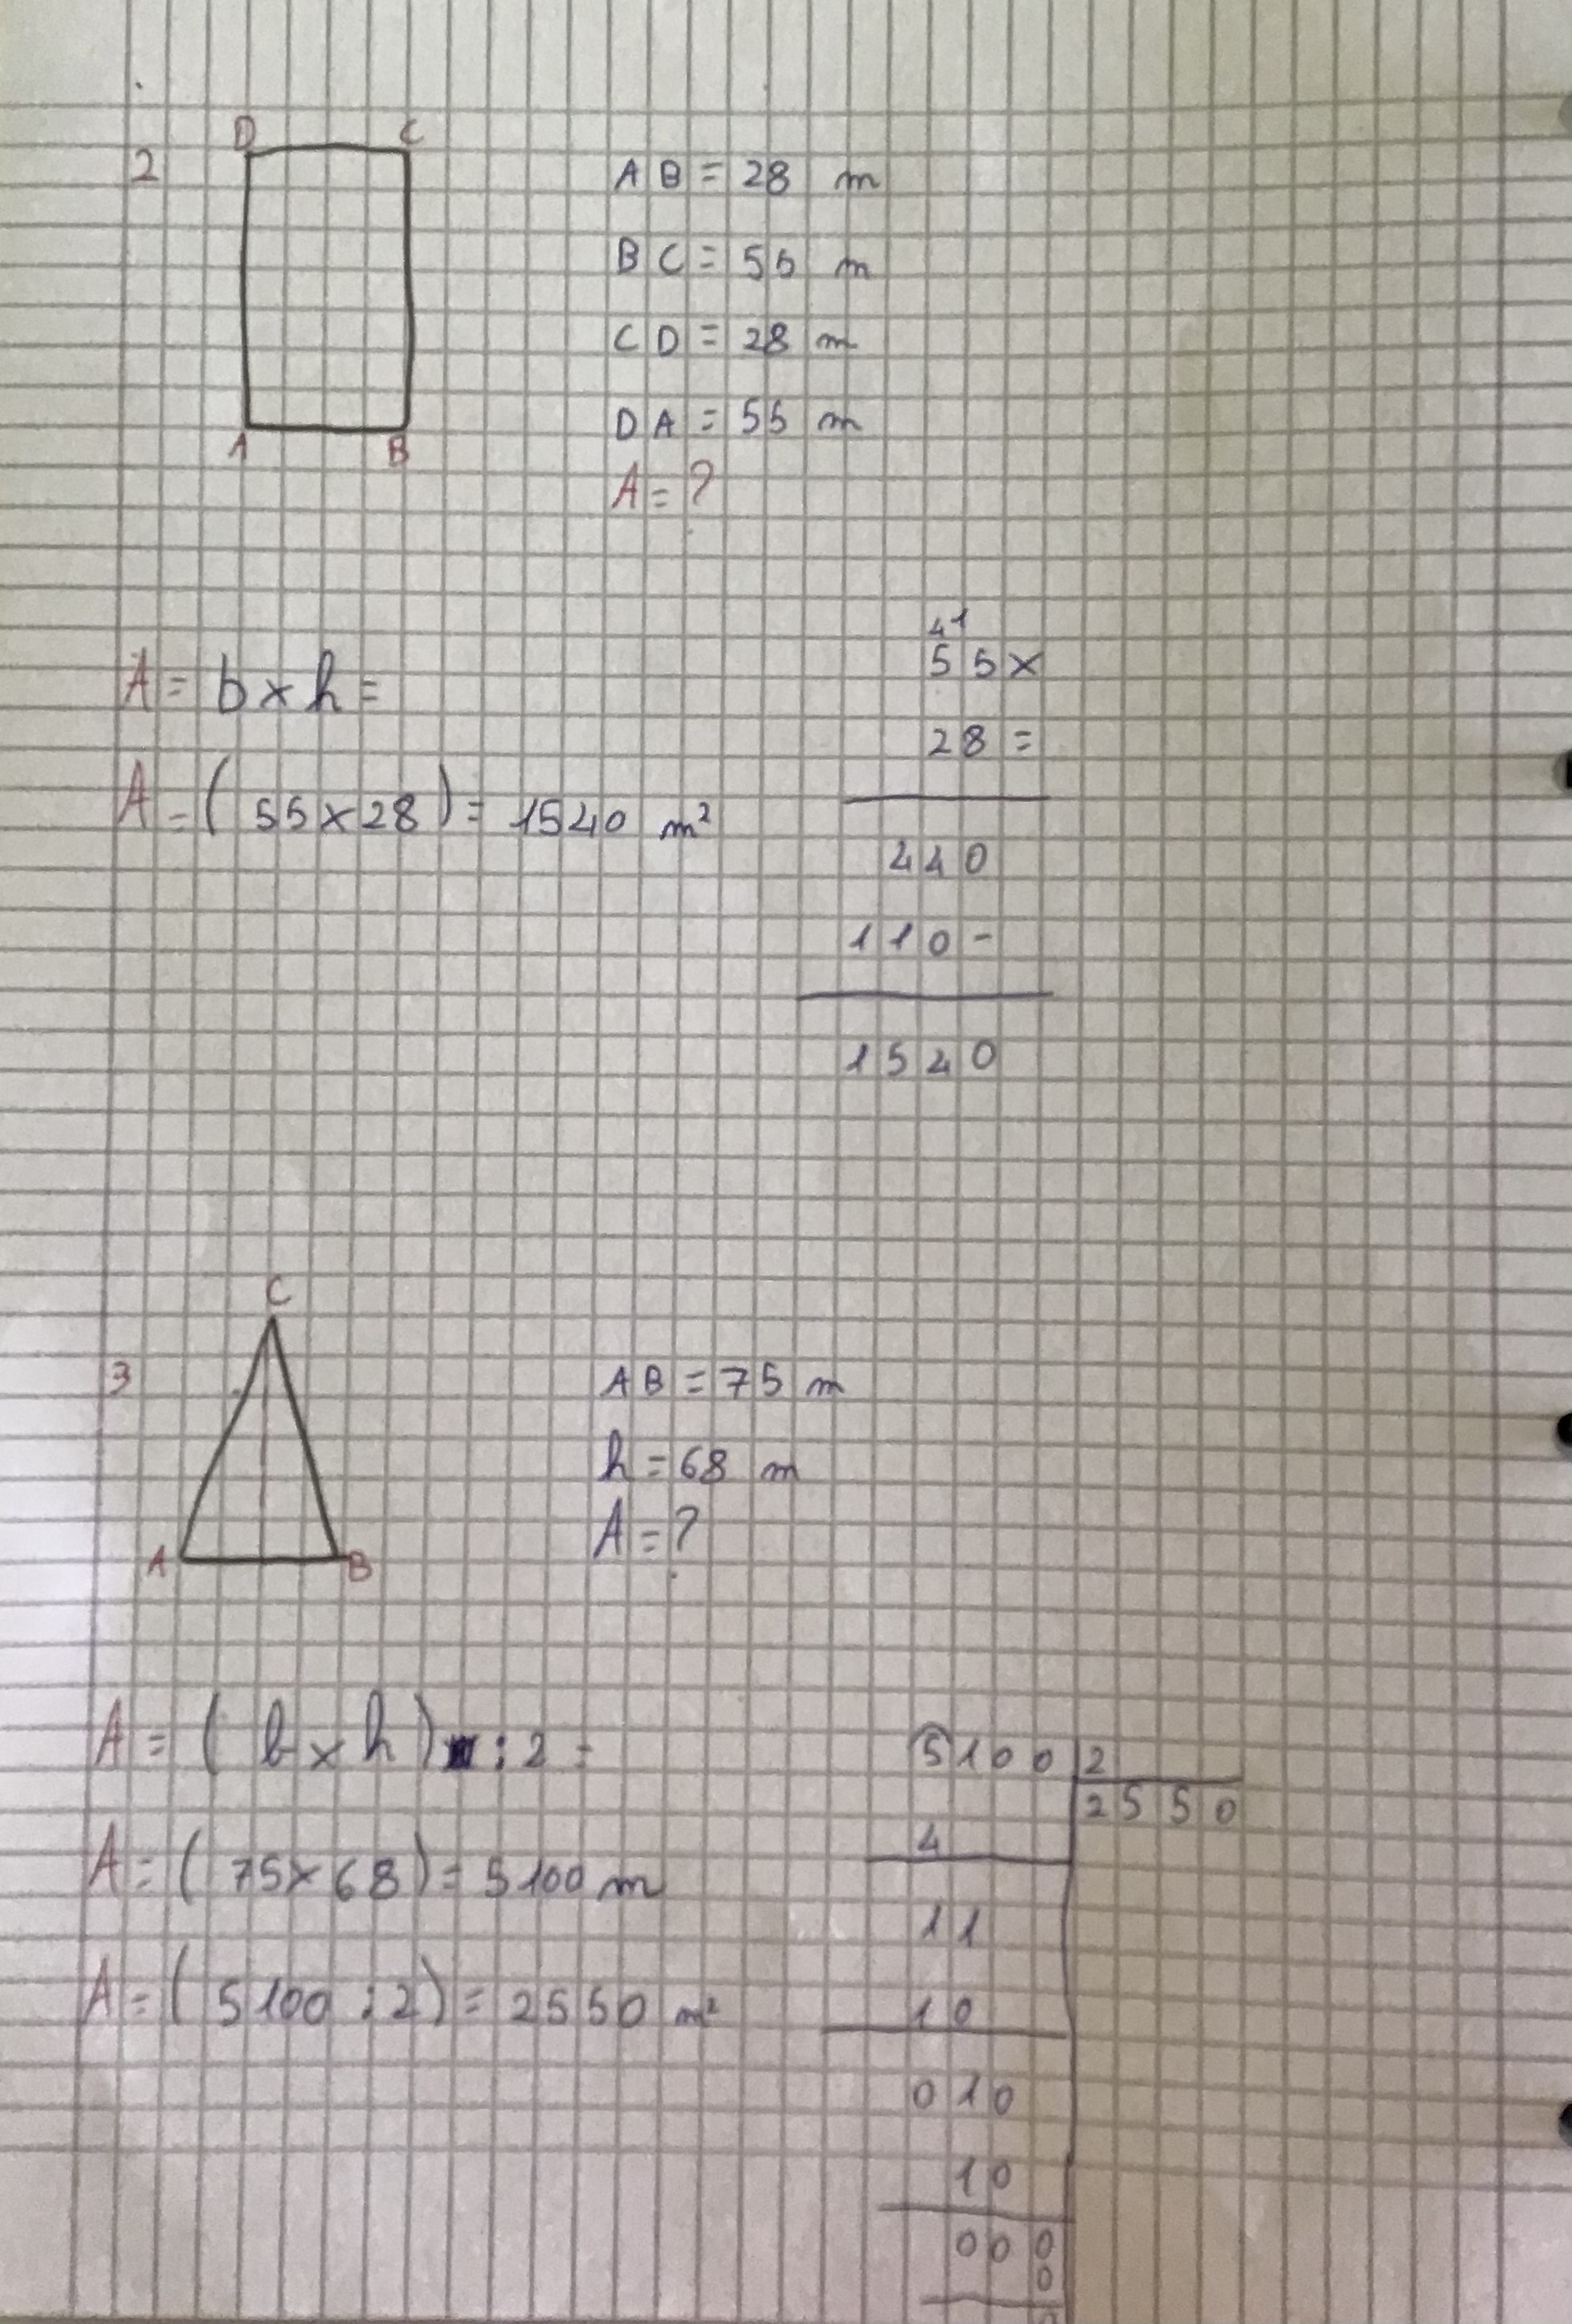 D C
2
A B
AB = 28 m
BC = 55 m
CD = 28 m
DA = 55 m
A = ?
A = b x h =
A = ( 55 x 28 ) = 1540 m²
41
55 x
28 =
440
110 -
1540
C
3
A B
AB = 75 m
h = 68 m
A = ?
A = ( b x h ) : 2 =
A = ( 75 x 68 ) = 5100 m
A = ( 5100 : 2 ) = 2550 m²
5100 2
2550
4
11
10
010
10
000
0